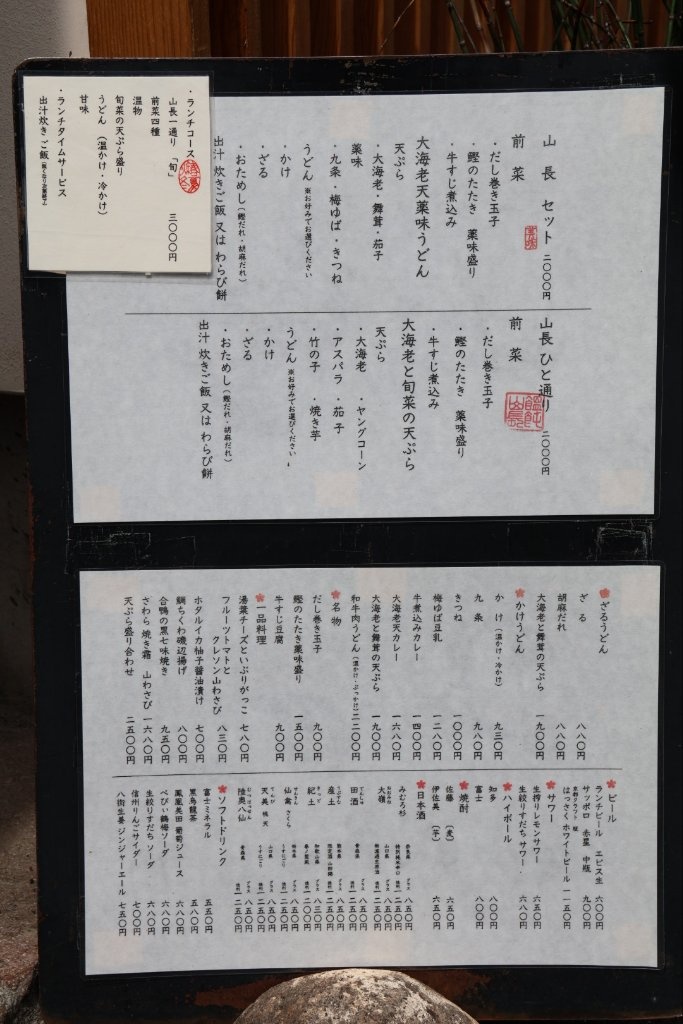 ・ランチコース
山長一通り「旬」 三〇〇〇円
前菜四種
温物
旬菜の天ぷら盛り
うどん（温かけ・冷かけ）
甘味
・ランチタイムサービス
出汁炊きご飯
山長 セット 二〇〇〇円
前菜
・だし巻き玉子
・鰹のたたき 薬味盛り
・牛すじ煮込み
大海老天薬味うどん
天ぷら
・大海老・舞茸・茄子
薬味
・九条・梅ゆば・きつね
うどん ※お好みでお選びください
・かけ
・ざる
・おためし（鰹だれ・胡麻だれ）
出汁 炊きご飯 又は わらび餅
山長 ひと通り 二〇〇〇円
前菜
・だし巻き玉子
・鰹のたたき 薬味盛り
・牛すじ煮込み
大海老と旬菜の天ぷら
天ぷら
・大海老 ・ヤングコーン
・アスパラ ・茄子
・竹の子 ・焼き芋
うどん ※お好みでお選びください
・かけ
・ざる
・おためし（鰹だれ・胡麻だれ）
出汁 炊きご飯 又は わらび餅
ざるうどん
ざる 八八〇円
胡麻だれ 八八〇円
大海老と舞茸の天ぷら 一九〇〇円
かけうどん
かけ（温かけ・冷かけ） 九三〇円
九条 九八〇円
きつね 一〇〇〇円
梅ゆば豆乳 一二八〇円
牛煮込みカレー 一四〇〇円
大海老天カレー 一六八〇円
大海老と舞茸の天ぷら 一九〇〇円
和牛肉うどん（温かけ・ぶっかけ） 二二〇〇円
名物
だし巻き玉子 九〇〇円
鰹のたたき薬味盛り 一五〇〇円
牛すじ豆腐 九〇〇円
一品料理
湯葉チーズといぶりがっこ 七八〇円
フルーツトマトと
クレソン山わさび 八三〇円
ホタルイカ柚子醤油漬け 七〇〇円
鯛ちくわ磯辺揚げ 八〇〇円
合鴨の黒七味焼き 九五〇円
さわら 焼き霜 山わさび 一六八〇円
天ぷら盛り合わせ 二五〇〇円
ビール
ランチビール エビス生 六〇〇円
サッポロ 赤星 中瓶 九〇〇円
はっさく ホワイトビール 一一五〇円
サワー
生搾りレモンサワー 六五〇円
生絞りすだちサワー 六八〇円
ハイボール
知多 八〇〇円
富士 八〇〇円
焼酎
佐藤（麦） 六五〇円
伊佐美（芋） 六五〇円
日本酒
みむろ杉
大嶺
田酒
産土
紀土
仙禽 さくら
天美
陸奥八仙
ソフトドリンク
富士ミネラル 五五〇円
黒烏龍茶 五八〇円
鳳凰美田 葡萄ジュース 六八〇円
べびぃ鶴梅ソーダ 六八〇円
生絞りすだち ソーダ 六八〇円
信州りんごサイダー 七〇〇円
八街生姜 ジンジャーエール 七五〇円